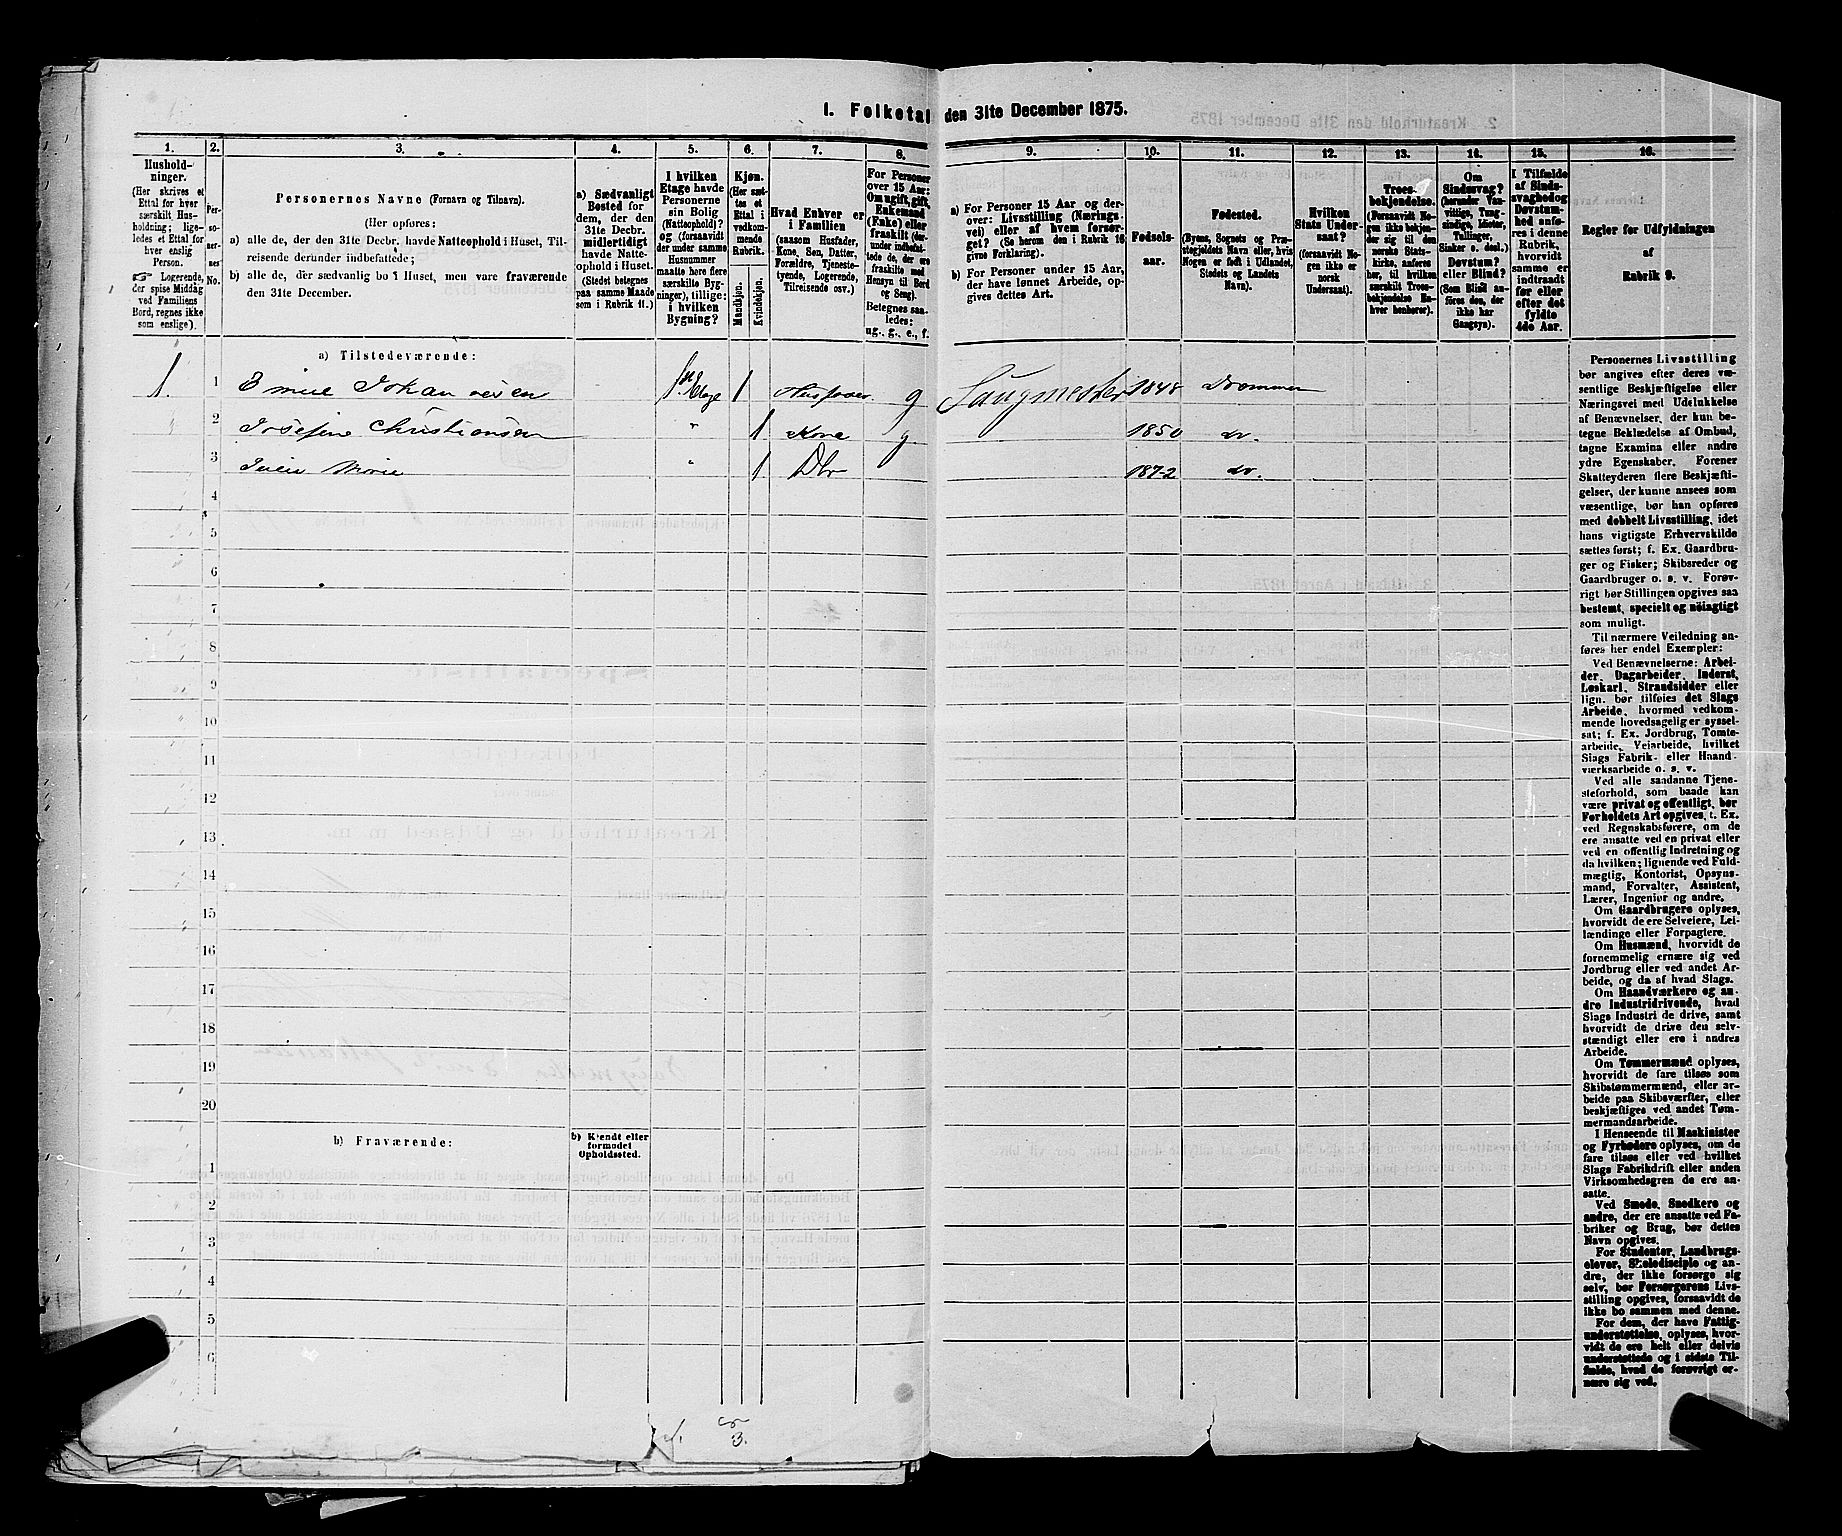 1. Folketal den 31te December 1875.
1. 2. 3. 4. 5. 6. 7. 8. 9. 10. 11. 12. 13. 14. 15. 16.
Hushold-
ninger.
(Her skrives et
Ettal for hver
særskilt Hus-
holdning; lige-
ledes et Ettal for
hver enslig
Person.
☞ Logerende,
der spise Middag
ved Familiens
Bord, regnes ikke
som enslige).
Per-
so-
ner-
nes
No.
Personernes Navne (Fornavn og Tilnavn).
(Her opføres:
a) alle de, der den 31te Decbr. havde Natteophold i Huset, Til-
reisende derunder indbefattede;
b) alle de, der sædvanlig bo i Huset, men vare fraværende
den 31te December.
a) Sædvanligt
Bosted for
dem, der den
31te Decbr.
midlertidigt
havde Natte-
ophold i Huset.
(Stedet betegnes
paa samme Maade
som i Rubrik 11.)
I hvilken
Etage havde
Personerne
sin Bolig
(Natteophold)?
og (forsaavidt
der under samme
Husnummer
maatte høre flere
særskilte Byg-
ninger), tillige:
i hvilken
Bygning?
Kjøn.
(Her sæt-
tes et
Ettal i
vedkom-
mende
Rubrik.
Mandkjøn.
Kvindekjøn.
Hvad Enhver er
i Familien
(saasom Husfader,
Kone, Søn, Datter,
Forældre, Tjeneste-
tyende, Logerende,
Tilreisende osv.)
For Personer
over 15 Aar:
Om ugift, gift,
Enkemand
(Enke) eller
fraskilt (der-
under indbefat-
tede de, der ere
fraskilte med
Hensyn til Bord
og Seng).
Betegnes saa-
ledes:
ug., g., e., f.
a) For Personer 15 Aar og der-
over: Livsstilling (Nærings-
vei) eller af hvem forsør-
get? (Se herom den i Rubrik 16
givne Forklaring).
b) For Personer under 15 Aar,
der have lønnet Arbeide, op-
gives dettes Art.
Fødsels-
aar.
Fødested.
(Byens, Sognets og Præ-
stegjeldets Navn eller, hvis
Nogen er født i Udlandet,
Stedets og Landets
Navn).
Hvilken
Stats Under-
saat?
(forsaavidt No-
gen ikke er
norsk
Undersaat).
Troes-
bekjendelse.
(Forsaavidt No-
gen ikke bekjen-
der sig til den
norske Stats-
kirke, anføres
her, til hvilken
særskilt Troes-
bekjendelse En-
hver henhører).
Om
Sindssvag?
(herunder Van-
vittige, Tung-
sindige, Idioter,
Tullinger,
Sinker o. desl.)
Døvstum?
eller Blind?
(Som Blind an-
føres den, der
ikke har
Gangsyn).
I Tilfælde
af Sinds-
svaghed og
Døvstum-
hed anfø-
res i denne
Rubrik,
hvorvidt
samme er
indtraadt
før eller
efter det
fyldte
4de Aar.
Regler for Udfyldningen
af
Rubrik 9.
a) Tilstedeværende:
1. 1 Emil Johannesen 1ste Etage 1 Husfader g Saugmester 1848 Drammen
2 Josefine Christiansen " 1 Kone g 1850 do.
3 Marie " 1 Dtr 1872 do.
4
5
6
7
8
9
10
11
12
13
14
15
16
17
18
19
20
b) Fraværende:
b) Kjendt eller
formodet
Opholdssted.
1
2
3
4
5
6
3.
Personernes Livsstilling
bør angives efter deres væ-
sentlige Beskjæftigelse eller
Næringsvei med Udelukkelse
af Benævnelser, der kun be-
tegne Beklædelse af Ombud,
tagne Examina eller andre
ydre Egenskaber. Forener
Skatteyderen flere Beskjæfti-
gelser, der kunne ansees som
væsentlige, bør han opføres
med dobbelt Livsstilling, idet
hans vigtigste Erhvervskilde
sættes først; f. Ex. Gaardbru-
ger og Fisker; Skibsreder og
Gaardbruger o. s. v. Forøv-
rigt bør Stillingen opgives saa
bestemt, specielt og nøiagtigt
som muligt.
Til nærmere Veiledning an-
føres her endel Exempler:
Ved Benævnelserne: Arbei-
der, Dagarbeider, Inderst,
Løskarl, Strandsidder eller
lign. bør tilføies det Slags
Arbeide, hvormed vedkom-
mende hovedsagelig er syssel-
sat; f. Ex. Jordbrug, Tomte-
arbeide, Veiarbeide, hvilket
Slags Fabrik- eller Haand-
værksarbeide o. s. v.
Ved alle saadanne Tjene-
steforhold, som baade kan
være privat og offentligt, bør
Forholdets Art opgives, t. Ex.
ved Regnskabsførere, om de
ere ansatte ved en privat eller
ved en offentlig Indretning og
da hvilken; lignende ved Fuld-
mægtig, Kontorist, Opsyns-
mand, Forvalter, Assistent,
Lærer, Ingeniør og andre.
Om Gaardbrugere oplyses,
hvorvidt de ere Selveiere, Lei-
lændinge eller Forpagtere.
Om Husmænd, hvorvidt de
fornemmelig ernære sig ved
Jordbrug eller ved andet Ar-
beide, og da af hvad Slags.
Om Haandværkere og an-
dre Industridrivende, hvad
Slags Industri de drive, samt
hvorvidt de drive den selv-
stændigt eller ere i andres
Arbeide.
Om Tømmermænd oplyses,
hvorvidt de fare tilsøs som
Skibstømmermænd, eller ar-
beide paa Skibsværfter, eller
beskjæftiges ved andet Tøm-
mermandsarbeide.
I Henseende til Maskinister
og Fyrbødere oplyses, om de
fare tilsøs eller ved hvilket
Slags Fabrikdrift eller anden
Virksomhedsgren de ere an-
satte.
Ved Smede, Snedkere og
andre, der ere ansatte ved Fa-
briker og Brug, bør dettes
Navn opgives.
For Studenter, Landbrugs-
elever, Skoledisciple og an-
dre, der ikke forsørge sig
selv, bør Forsørgerens Livs-
stilling opgives, forsaavidt de
ikke bo sammen med denne.
For dem, der have Fattig-
understøttelse, oplyses, hvor-
vidt de ere helt eller delvis
understøttede og i sidste Til-
fælde, hvad de forøvrigt er-
nære sig ved.